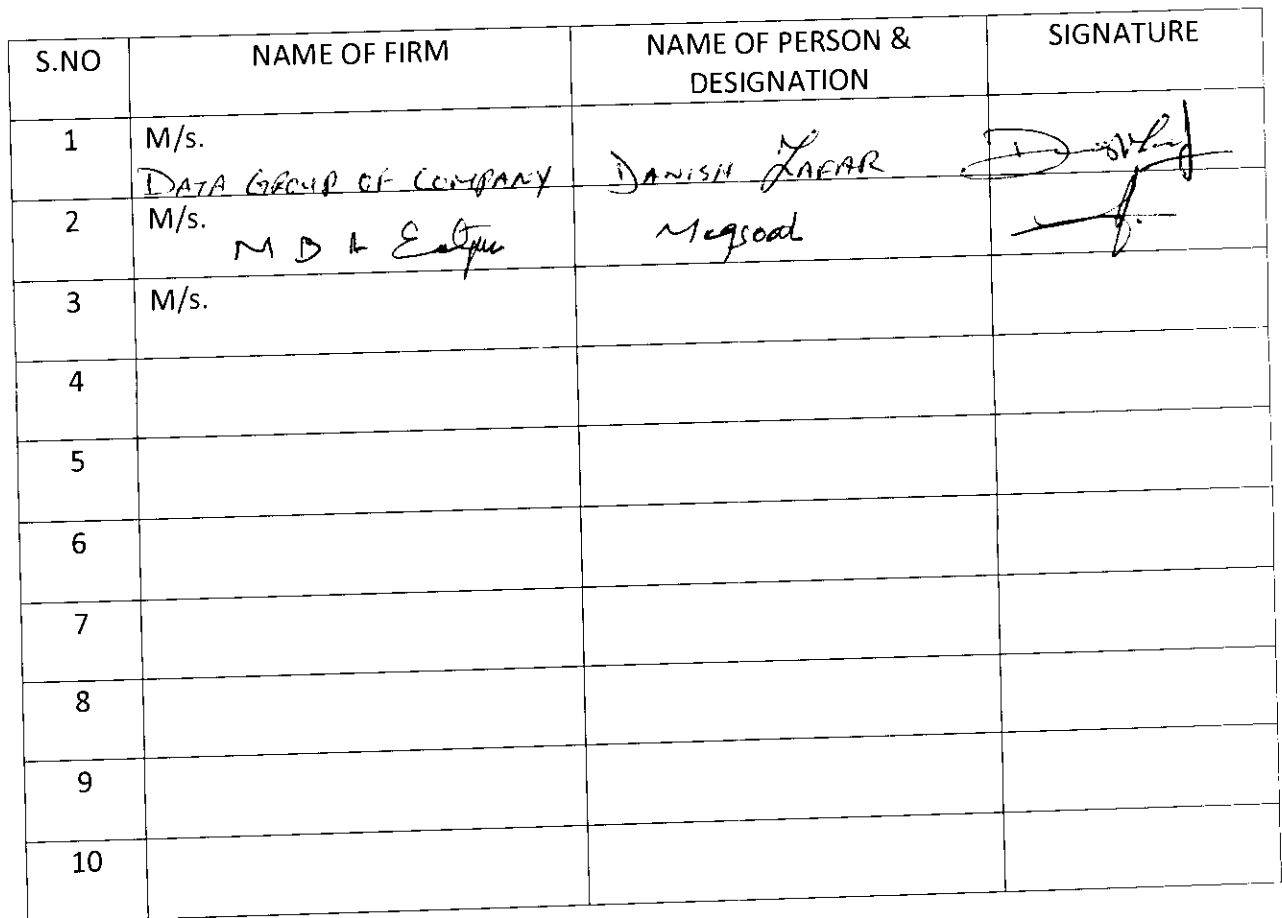 S.NO NAME OF FIRM NAME OF PERSON & SIGNATURE
DESIGNATION
1 M/s.
DATA GROUP OF COMPANY DANISH ZAFAR
2 M/s.
M B Maqsood
3 M/s.
4
5
6
7
8
9
10